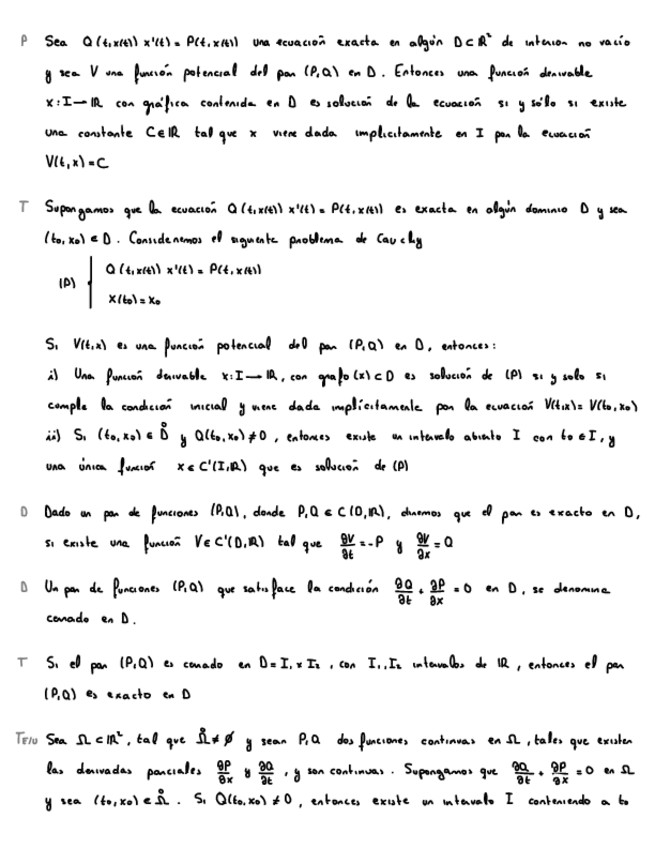 P Sea Q(t,x(t)) x'(t) = P(t,x(t)) una ecuación exacta en algún D⊂ℝ² de interior no vacío
y sea V una función potencial del par (P,Q) en D. Entonces una función derivable
x: I → ℝ con gráfica contenida en D es solución de la ecuación si y sólo si existe
una constante C∈ℝ tal que x viene dada implícitamente en I por la ecuación
V(t,x) = C
T Supongamos que la ecuación Q(t,x(t)) x'(t) = P(t,x(t)) es exacta en algún dominio D y sea
(t₀,x₀) ∈ D. Consideremos el siguiente problema de Cauchy
(P) { Q(t,x(t)) x'(t) = P(t,x(t))
x(t₀) = x₀
Si V(t,x) es una función potencial del par (P,Q) en D, entonces:
i) Una función derivable x: I → ℝ, con grafo(x) ⊂ D es solución de (P) si y solo si
cumple la condición inicial y viene dada implícitamente por la ecuación V(t,x) = V(t₀,x₀)
ii) Si (t₀,x₀) ∈ D̊ y Q(t₀,x₀) ≠ 0, entonces existe un intervalo abierto I con t₀ ∈ I, y
una única función x ∈ C'(I,ℝ) que es solución de (P)
D Dado un par de funciones (P,Q), donde P,Q ∈ C(D,ℝ), diremos que el par es exacto en D,
si existe una función V ∈ C'(D,ℝ) tal que ∂V/∂t = -P y ∂V/∂x = Q
D Un par de funciones (P,Q) que satisface la condición ∂Q/∂t + ∂P/∂x = 0 en D, se denomina
cerrado en D.
T Si el par (P,Q) es cerrado en D = I₁ × I₂, con I₁, I₂ intervalos de ℝ, entonces el par
(P,Q) es exacto en D
T E/U Sea Ω ⊂ ℝ², tal que Ω̊ ≠ ∅ y sean P,Q dos funciones continuas en Ω, tales que existen
las derivadas parciales ∂P/∂x y ∂Q/∂t, y son continuas. Supongamos que ∂Q/∂t + ∂P/∂x = 0 en Ω
y sea (t₀,x₀) ∈ Ω̊. Si Q(t₀,x₀) ≠ 0, entonces existe un intervalo I conteniendo a t₀